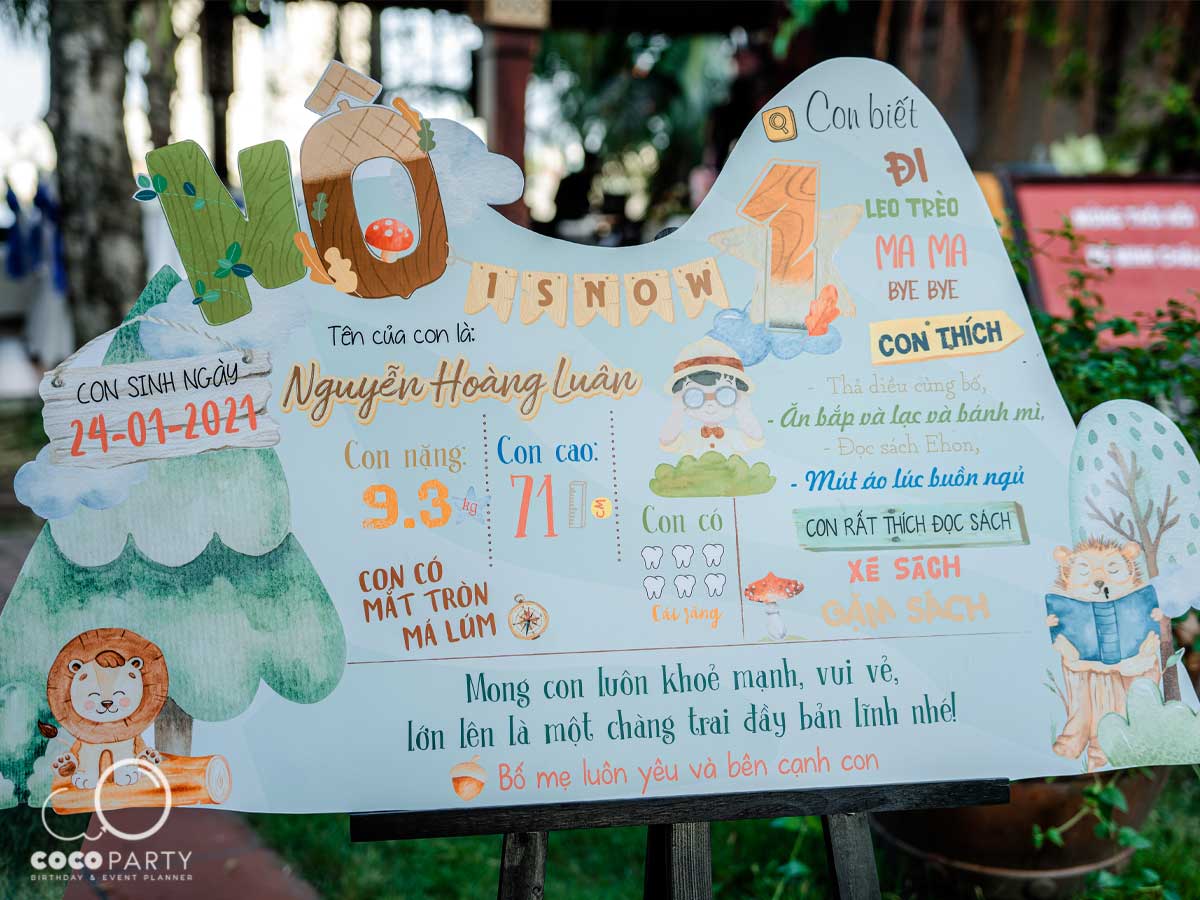 NÔ
1 SNOW
1
Tên của con là:
Nguyễn Hoàng Luân
CON SINH NGÀY
24-01-2021
Con nặng:
9.3 kg
Con cao:
71 CM
CON CÓ
MẮT TRÒN
MÁ LÚM
Con có
Cái răng
Con biết
ĐI
LEO TRÈO
MA MA
BYE BYE
CON THÍCH
- Thả diều cùng bố,
- Ăn bắp và lạc và bánh mì,
- Đọc sách Ehon,
- Mút áo lúc buồn ngủ
CON RẤT THÍCH ĐỌC SÁCH
XÉ SÁCH
GẶM SÁCH
Mong con luôn khoẻ mạnh, vui vẻ,
lớn lên là một chàng trai đầy bản lĩnh nhé!
Bố mẹ luôn yêu và bên cạnh con
COCO PARTY
BIRTHDAY & EVENT PLANNER